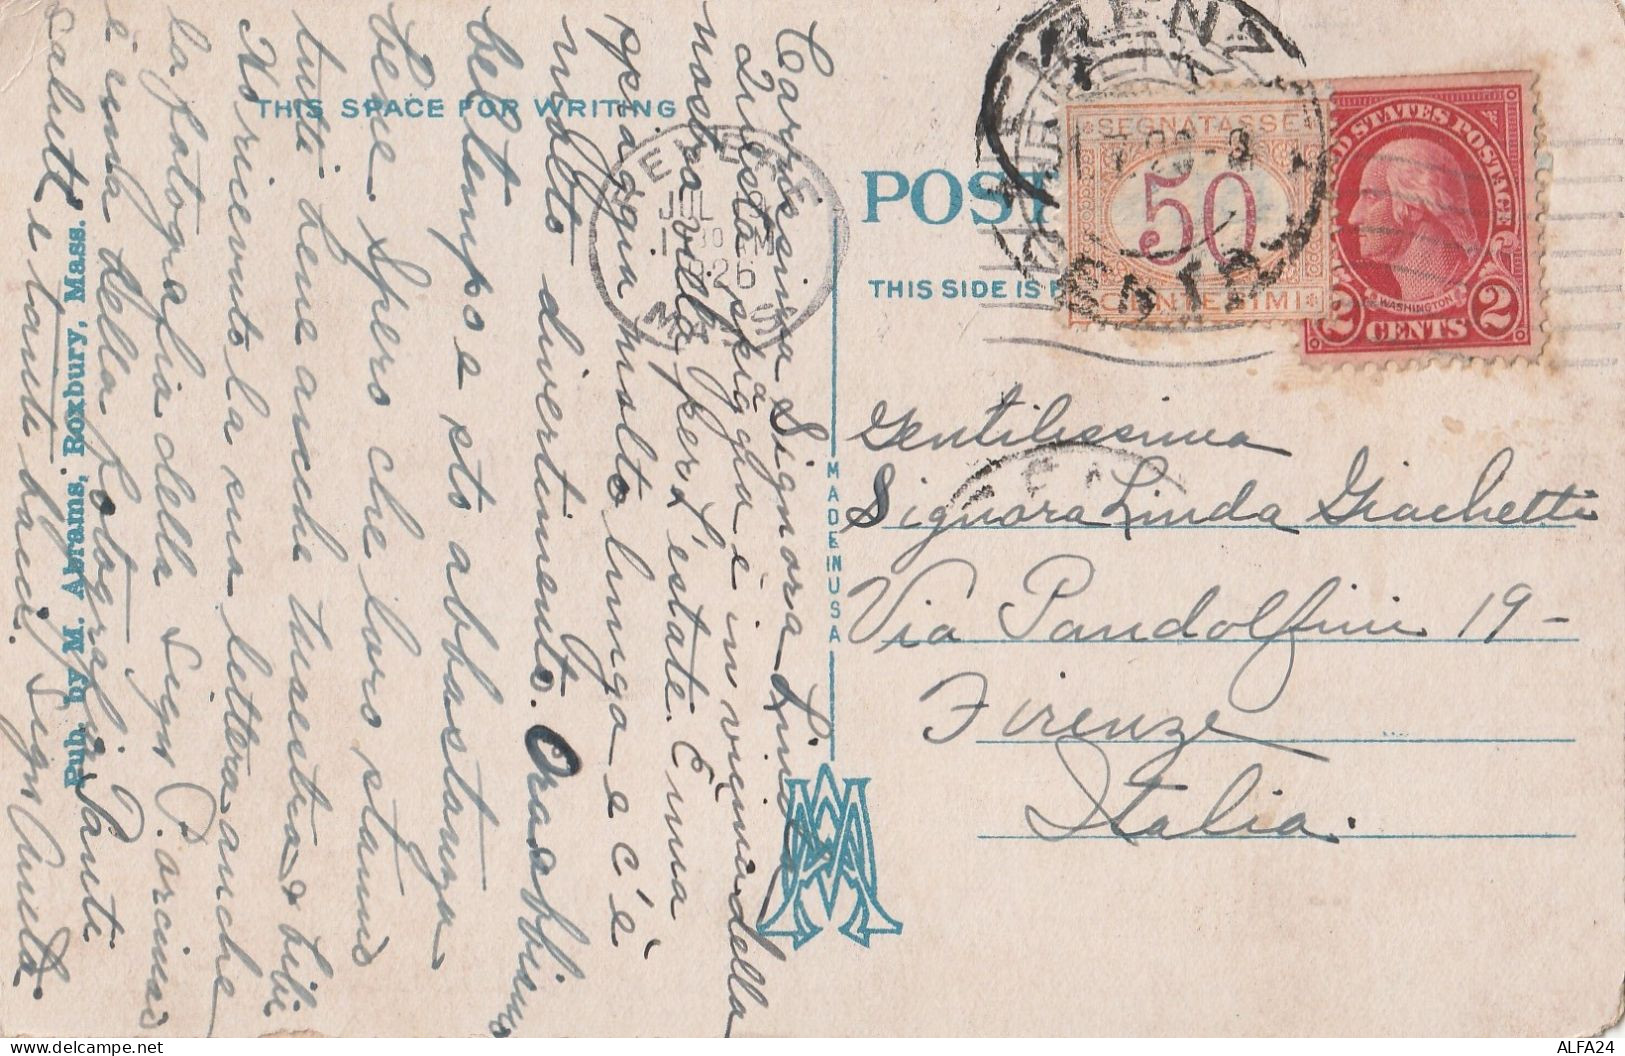 Carissima Signora Linda
Questa spiaggia è in vicina della
nostra villa per l'estate. È una
spiaggia molto lunga e c'è
molto divertimento. Ora abbiamo
bel tempo e sto abbastanza
bene. Spero che loro stanno
tutti bene anche maestra e Lili
Ho ricevuto la sua lettera anche
la fotografia della Sign.
è una bella fotografia. Tanti
saluti e tanti baci. Sign
THIS SPACE FOR WRITING
Pub. by M. Abrams, Roxbury, Mass.
MADE IN USA
REVERE
JUL
1926
MASS
POST
THIS SIDE IS F
FIRENZE
SEGNATASSE
50
CENTESIMI
UNITED STATES POSTAGE
WASHINGTON
2 CENTS 2
Gentilissima
Signora Linda Giachetti
Via Pandolfini 19 –
Firenze
Italia.
ALFA24